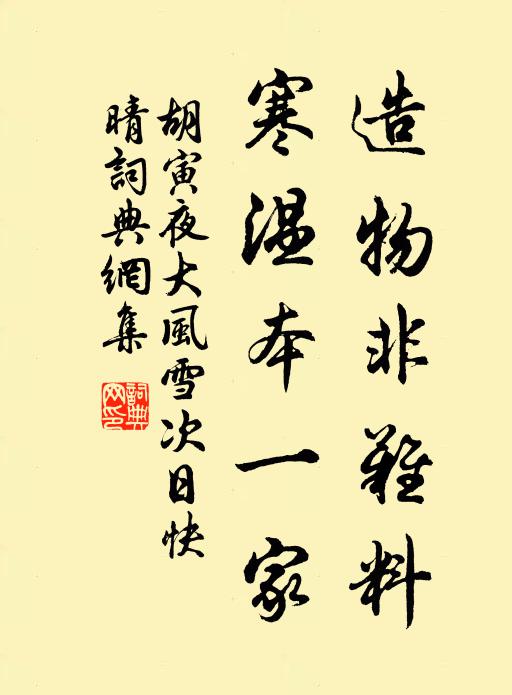 造物非難料
寒温本一家
胡寅夜大風雪次日快
晴詞典網集
詞典網印